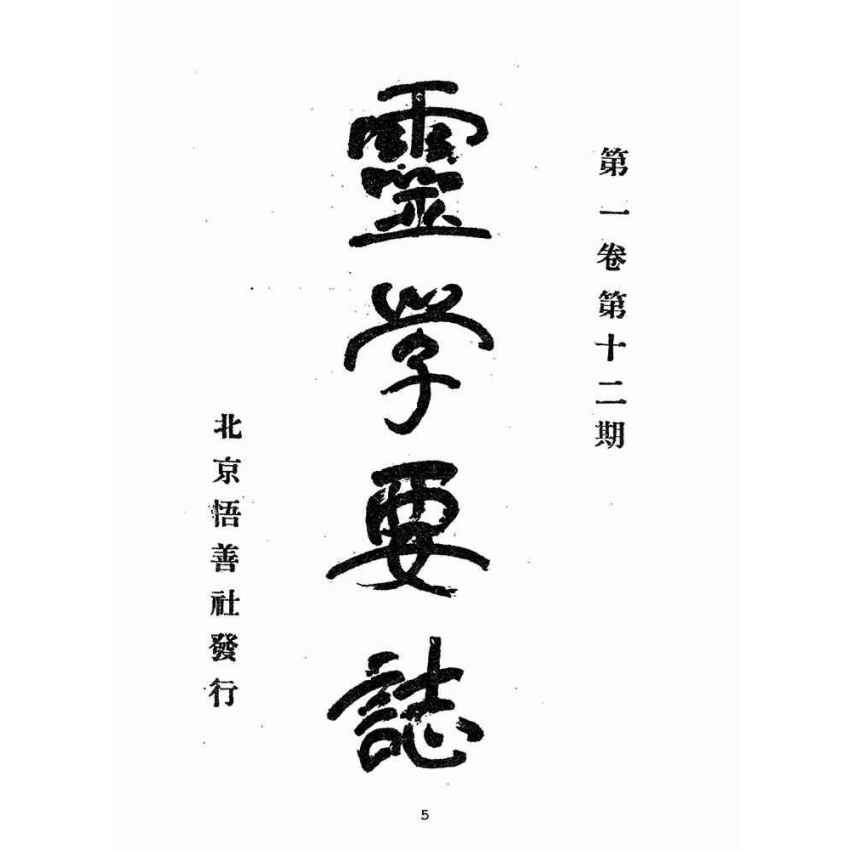 第一卷第十二期
靈學要誌
北京悟善社發行
5